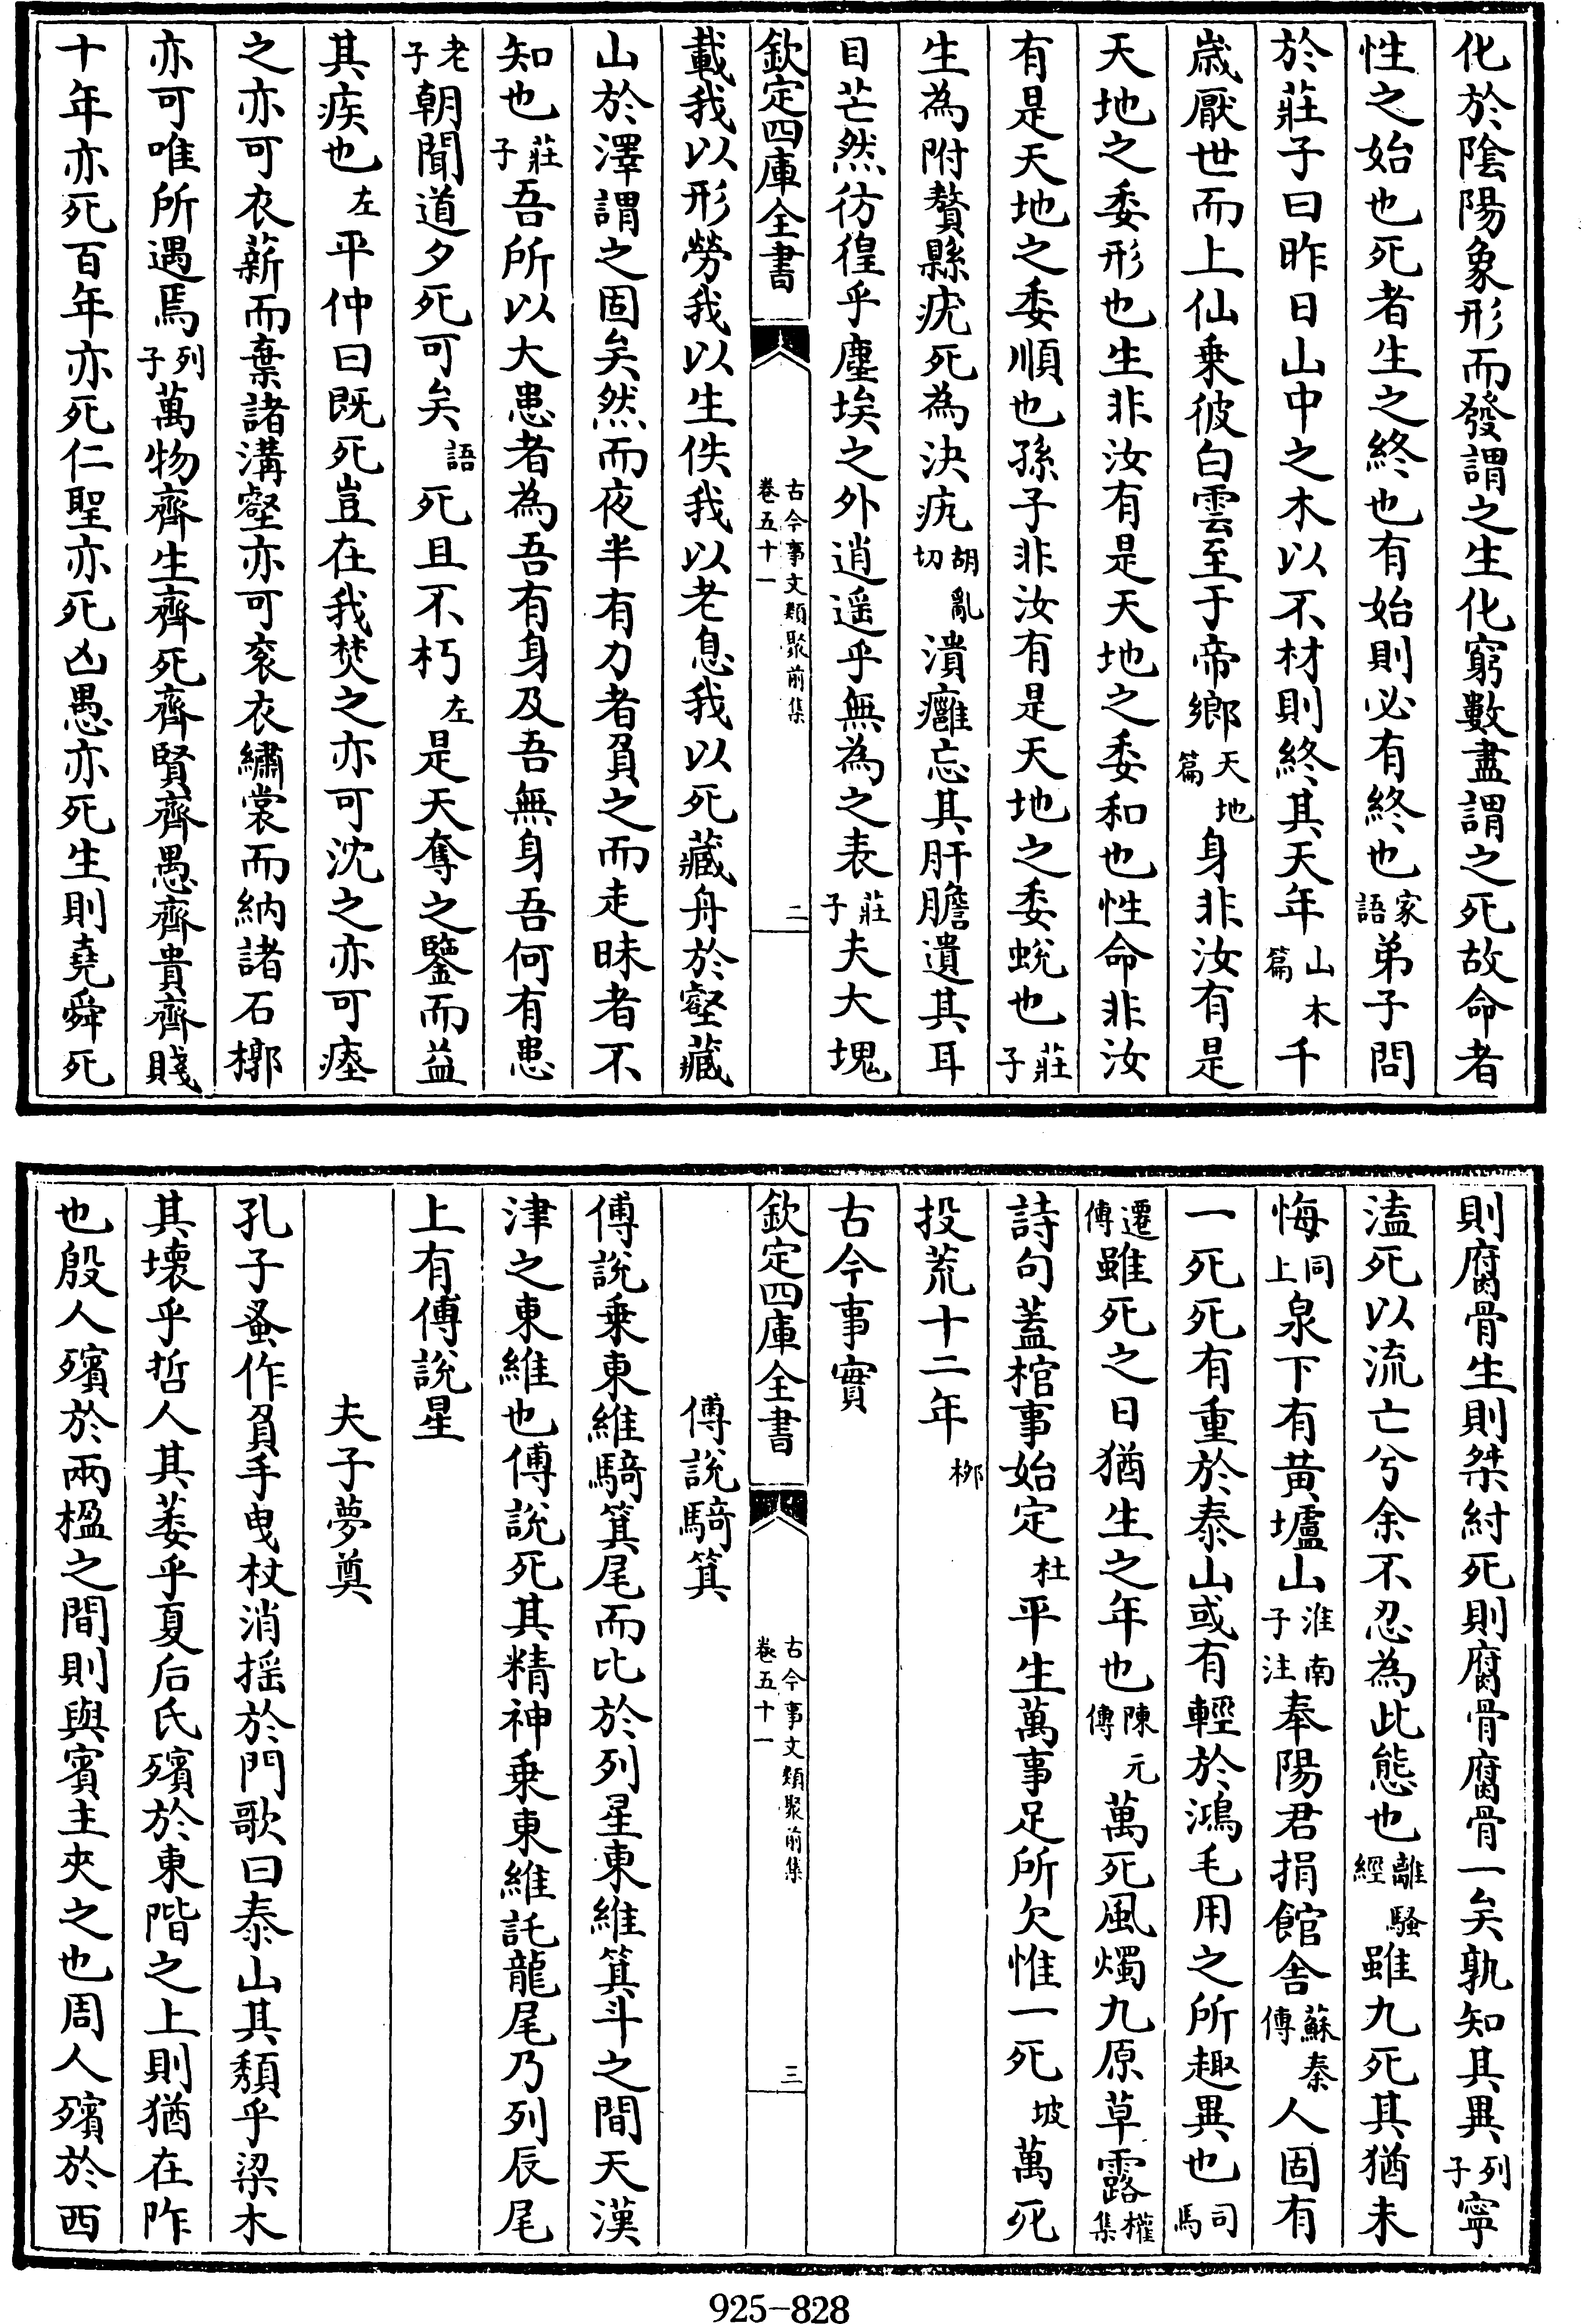 化於隂陽象形而發謂之生化窮數盡謂之死故命者
性之始也死者生之終也有始則必有終也家語弟子問
於莊子曰昨日山中之木以不材則終其天年山木篇千
嵗厭世而上仙乗彼白雲至于帝鄉天地篇身非汝有是
天地之委形也生非汝有是天地之委和也性命非汝
有是天地之委順也孫子非汝有是天地之委蛻也莊子
生為附贅縣疣死為決𤴯胡亂切潰癰忘其肝膽遺其耳
目芒然彷徨乎塵埃之外逍遥乎無為之表莊子夫大塊
欽定四庫全書
古今事文類聚前集
卷五十一
二
載我以形勞我以生佚我以老息我以死藏舟於壑藏
山於澤謂之固矣然而夜半有力者負之而走昧者不
知也莊子吾所以大患者為吾有身及吾無身吾何有患
老子朝聞道夕死可矣語死且不朽左是天奪之鑒而益
其疾也左平仲曰既死豈在我焚之亦可沈之亦可瘞
之亦可衣薪而棄諸溝壑亦可衮衣繡裳而納諸石槨
亦可唯所遇焉列子萬物齊生齊死齊賢齊愚齊貴齊賤
十年亦死百年亦死仁聖亦死凶愚亦死生則堯舜死
則腐骨生則桀紂死則腐骨腐骨一矣孰知其異列子寧
溘死以流亡兮余不忍為此態也離騷經雖九死其猶未
悔同上泉下有黄壚山淮南子注奉陽君捐館舎蘇秦傳人固有
一死死有重於泰山或有輕於鴻毛用之所趣異也司馬
遷傳雖死之日猶生之年也陳元傳萬死風燭九原草露權集
詩句蓋棺事始定杜平生萬事足所欠惟一死坡萬死
投荒十二年栁
古今事實
欽定四庫全書
古今事文類聚前集
卷五十一
三
傅說騎箕
傅說乗東維騎箕尾而比於列星東維箕斗之間天漢
津之東維也傅說死其精神乗東維託龍尾乃列辰尾
上有傅說星
夫子夢奠
孔子蚤作負手曳杖消揺於門歌曰泰山其頽乎梁木
其壊乎哲人其萎乎夏后氏殯於東階之上則猶在阼
也殷人殯於兩楹之間則與賓主夾之也周人殯於西
925-828